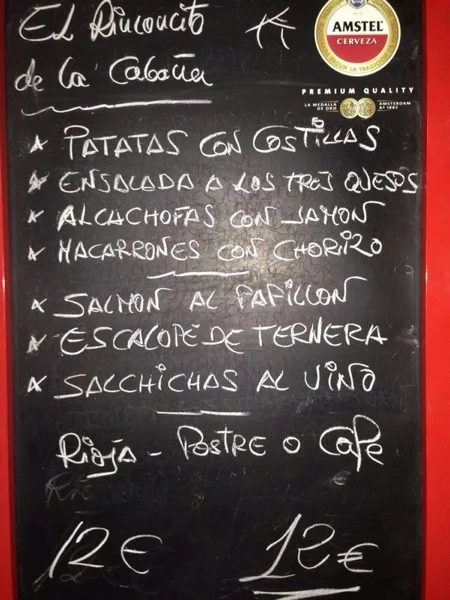 El Rinconcito
de la Cabaña
AMSTEL
CERVEZA
PREMIUM QUALITY
LA MEDALLA DE ORO
AMSTERDAM Aº 1883
PATATAS CON COSTILLAS
ENSALADA A LOS TRES QUESOS
ALCACHOFAS CON JAMON
MACARRONES CON CHORIZO
SALMON AL PAPILLON
ESCALOPE DE TERNERA
SALCHICHAS AL VINO
Rioja - Postre o Café
12€ 12€